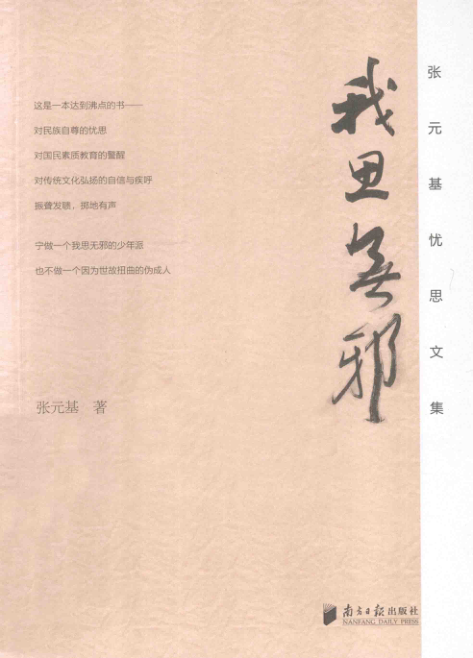 我思無邪
张元基忧思文集
这是一本达到沸点的书——
对民族自尊的忧思
对国民素质教育的警醒
对传统文化弘扬的自信与疾呼
振聋发聩，掷地有声
宁做一个我思无邪的少年派
也不做一个因为世故扭曲的伪成人
张元基 著
南方日报出版社
NANFANG DAILY PRESS